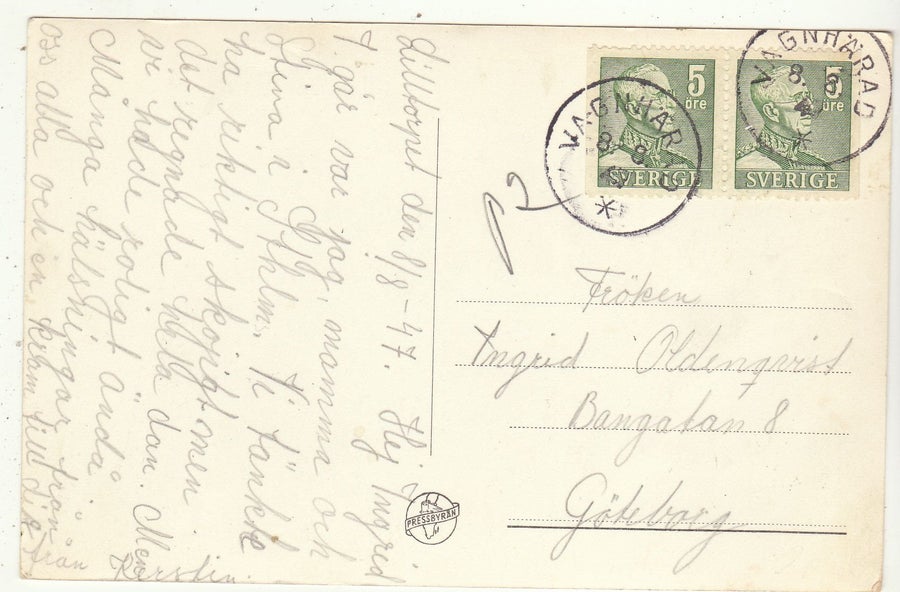 Lilltorpet den 8/8-47. Hej Ingrid
I går var jag, mamma och
Stina i Sthlm. Vi tänkte
ha riktigt skojigt men
det regnade hela dan. Men
vi hade roligt ändå.
Många hälsningar från
oss alla och en kram till dig från
Kerstin.
VAGNHÄRAD
8. 8.
VAGNHÄRAD
8. 8.
5
öre
SVERIGE
5
öre
SVERIGE
Fröken
Ingrid Oldenqvist
Bangatan 8
Göteborg
PRESSBYRÅN